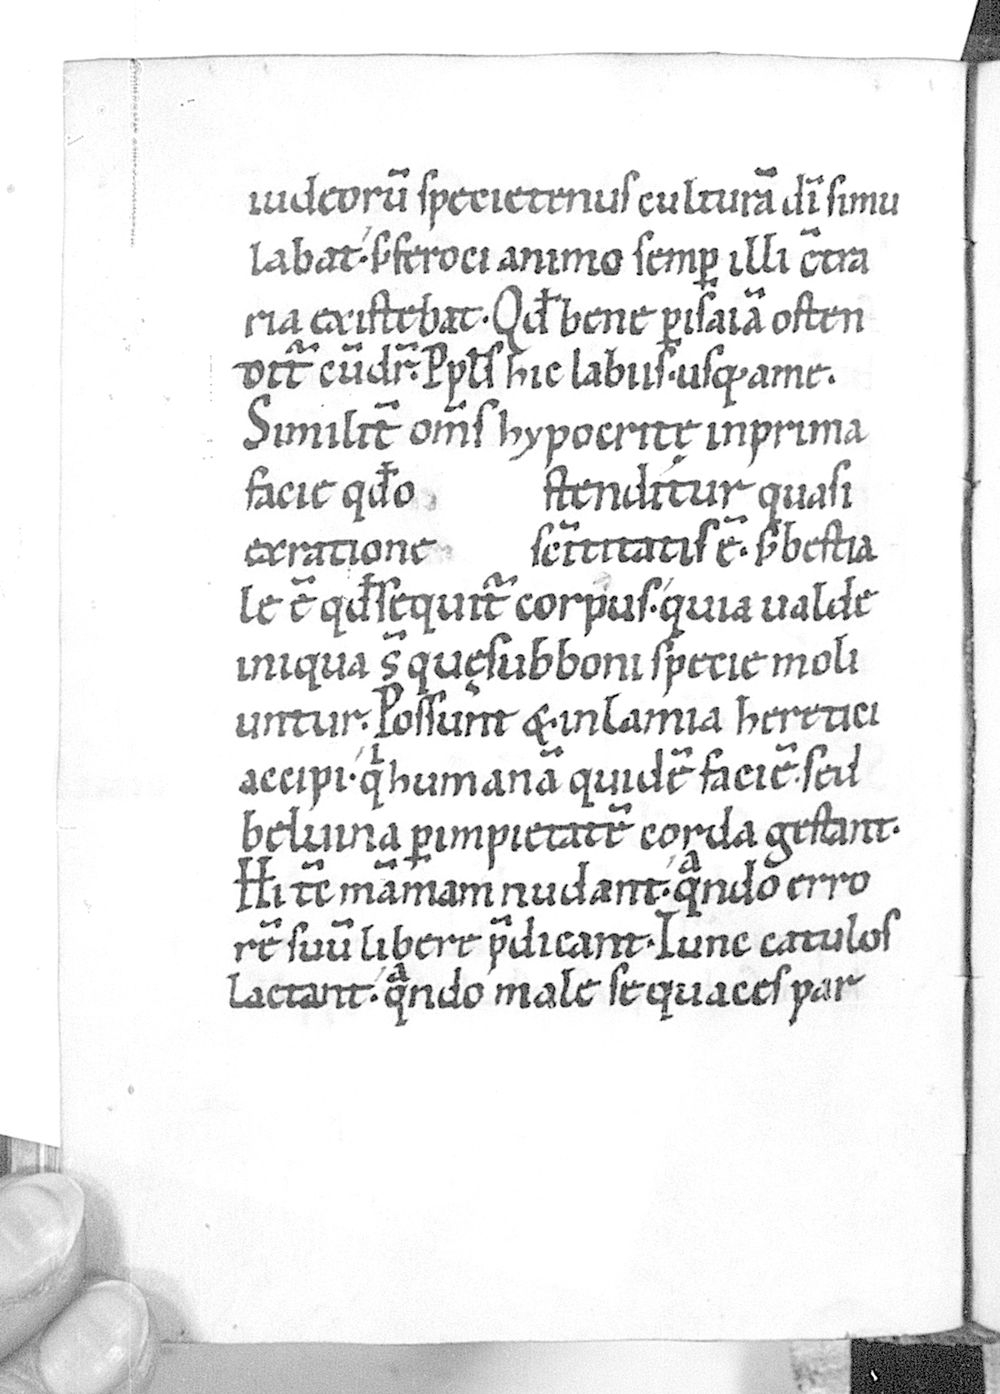 iudeorū specietenus culturā dī simu
labat· s; feroci animo semp̱ illi c̄tra
ria existebat· Qđ bene p̱ isaiā osten
ditᷓ cū dr̄· Pp̄ls hic labiis· usq; ame·
Similit̄ om̄s hypocritę inprima
facie qđ o stenditur quasi
exratione semitatis ē· s; bestia
le ē qđ sequitᷓ corpus· quia ualde
iniqua s̄ quę sub boni specie moli
untur· Possunt & inlamia heretici
accipi· qͥ humanā quidē faciē· sed
beluina p̱ impietatē corda gestant·
Hi tc̄ māmam nudant· qͣndo erro
rē suū libere p̄dicant· Tunc catulos
lactant· qͣndo male sequaces par